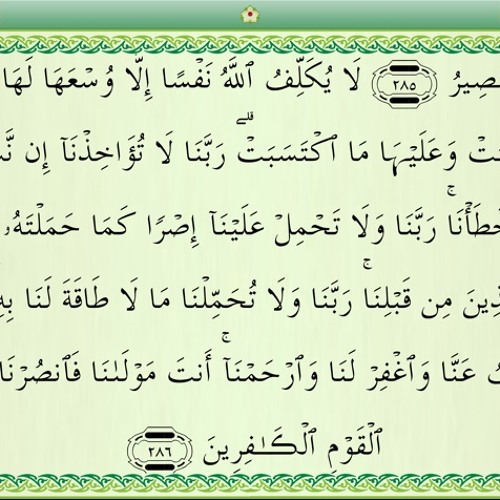 صِيرُ ٢٨٥ لَا يُكَلِّفُ ٱللَّهُ نَفْسًا إِلَّا وُسْعَهَا لَهَا
تْ وَعَلَيْهَا مَا ٱكْتَسَبَتْ ۗ رَبَّنَا لَا تُؤَاخِذْنَآ إِن نَّ
خْطَأْنَا ۚ رَبَّنَا وَلَا تَحْمِلْ عَلَيْنَآ إِصْرًا كَمَا حَمَلْتَهُۥ
ذِينَ مِن قَبْلِنَا ۚ رَبَّنَا وَلَا تُحَمِّلْنَا مَا لَا طَاقَةَ لَنَا بِهِ
فُ عَنَّا وَٱغْفِرْ لَنَا وَٱرْحَمْنَآ ۚ أَنتَ مَوْلَىٰنَا فَٱنصُرْنَا
ٱلْقَوْمِ ٱلْكَـٰفِرِينَ ٢٨٦